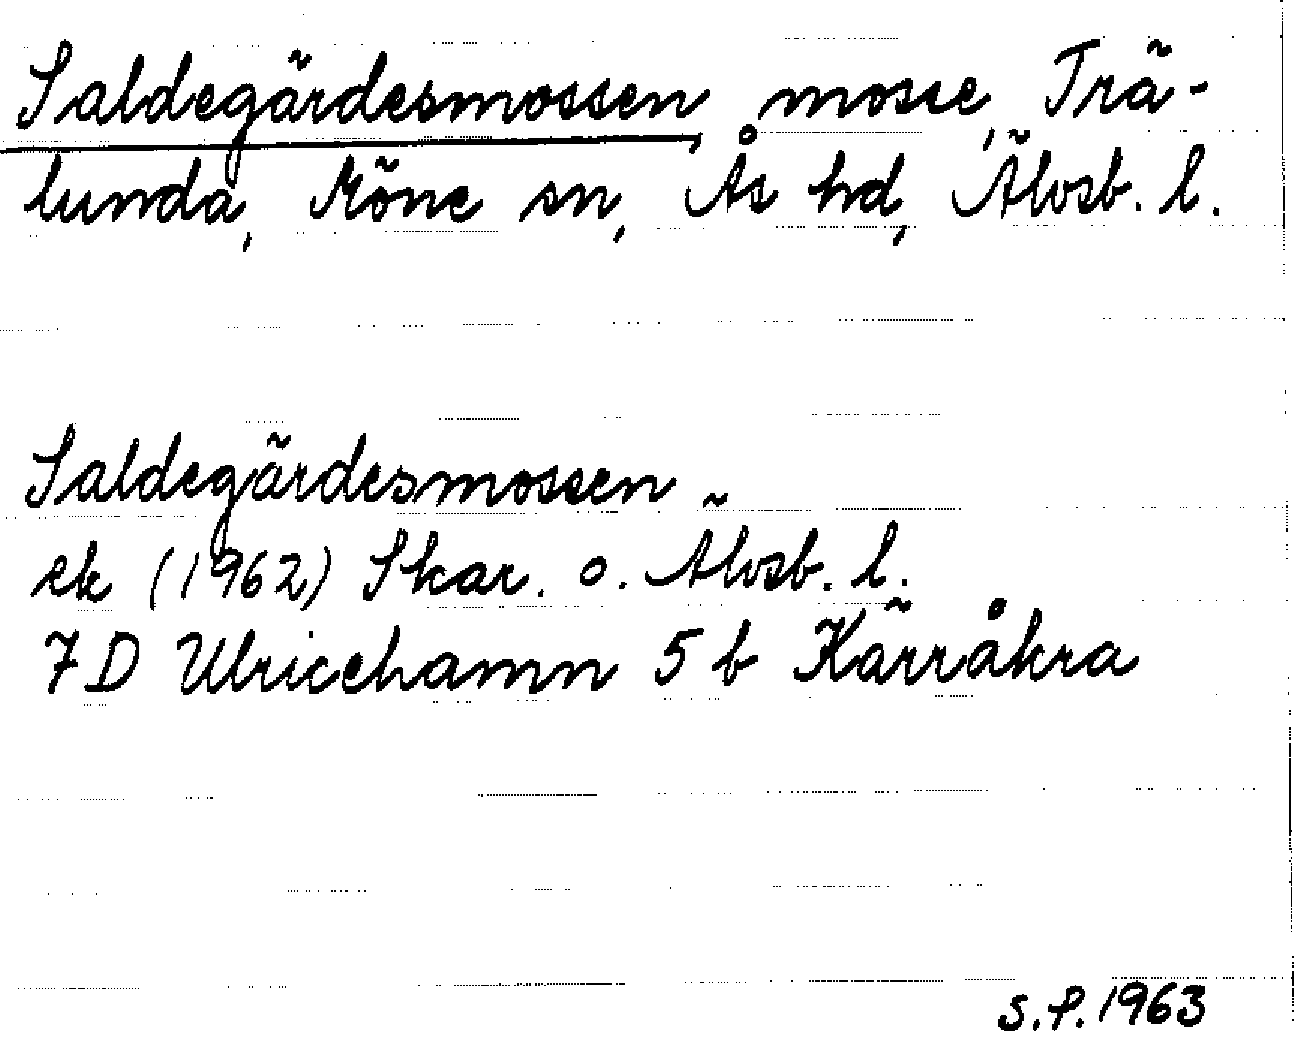 Saldegärdesmossen, mosse, Trä-
lunda, Möne sn, Ås hd, Älvsb. l.
Saldegärdesmossen
ek (1962) Skar. o. Älvsb. l.
7 D Ulricehamn 5 b Kärråkra
S.P. 1963